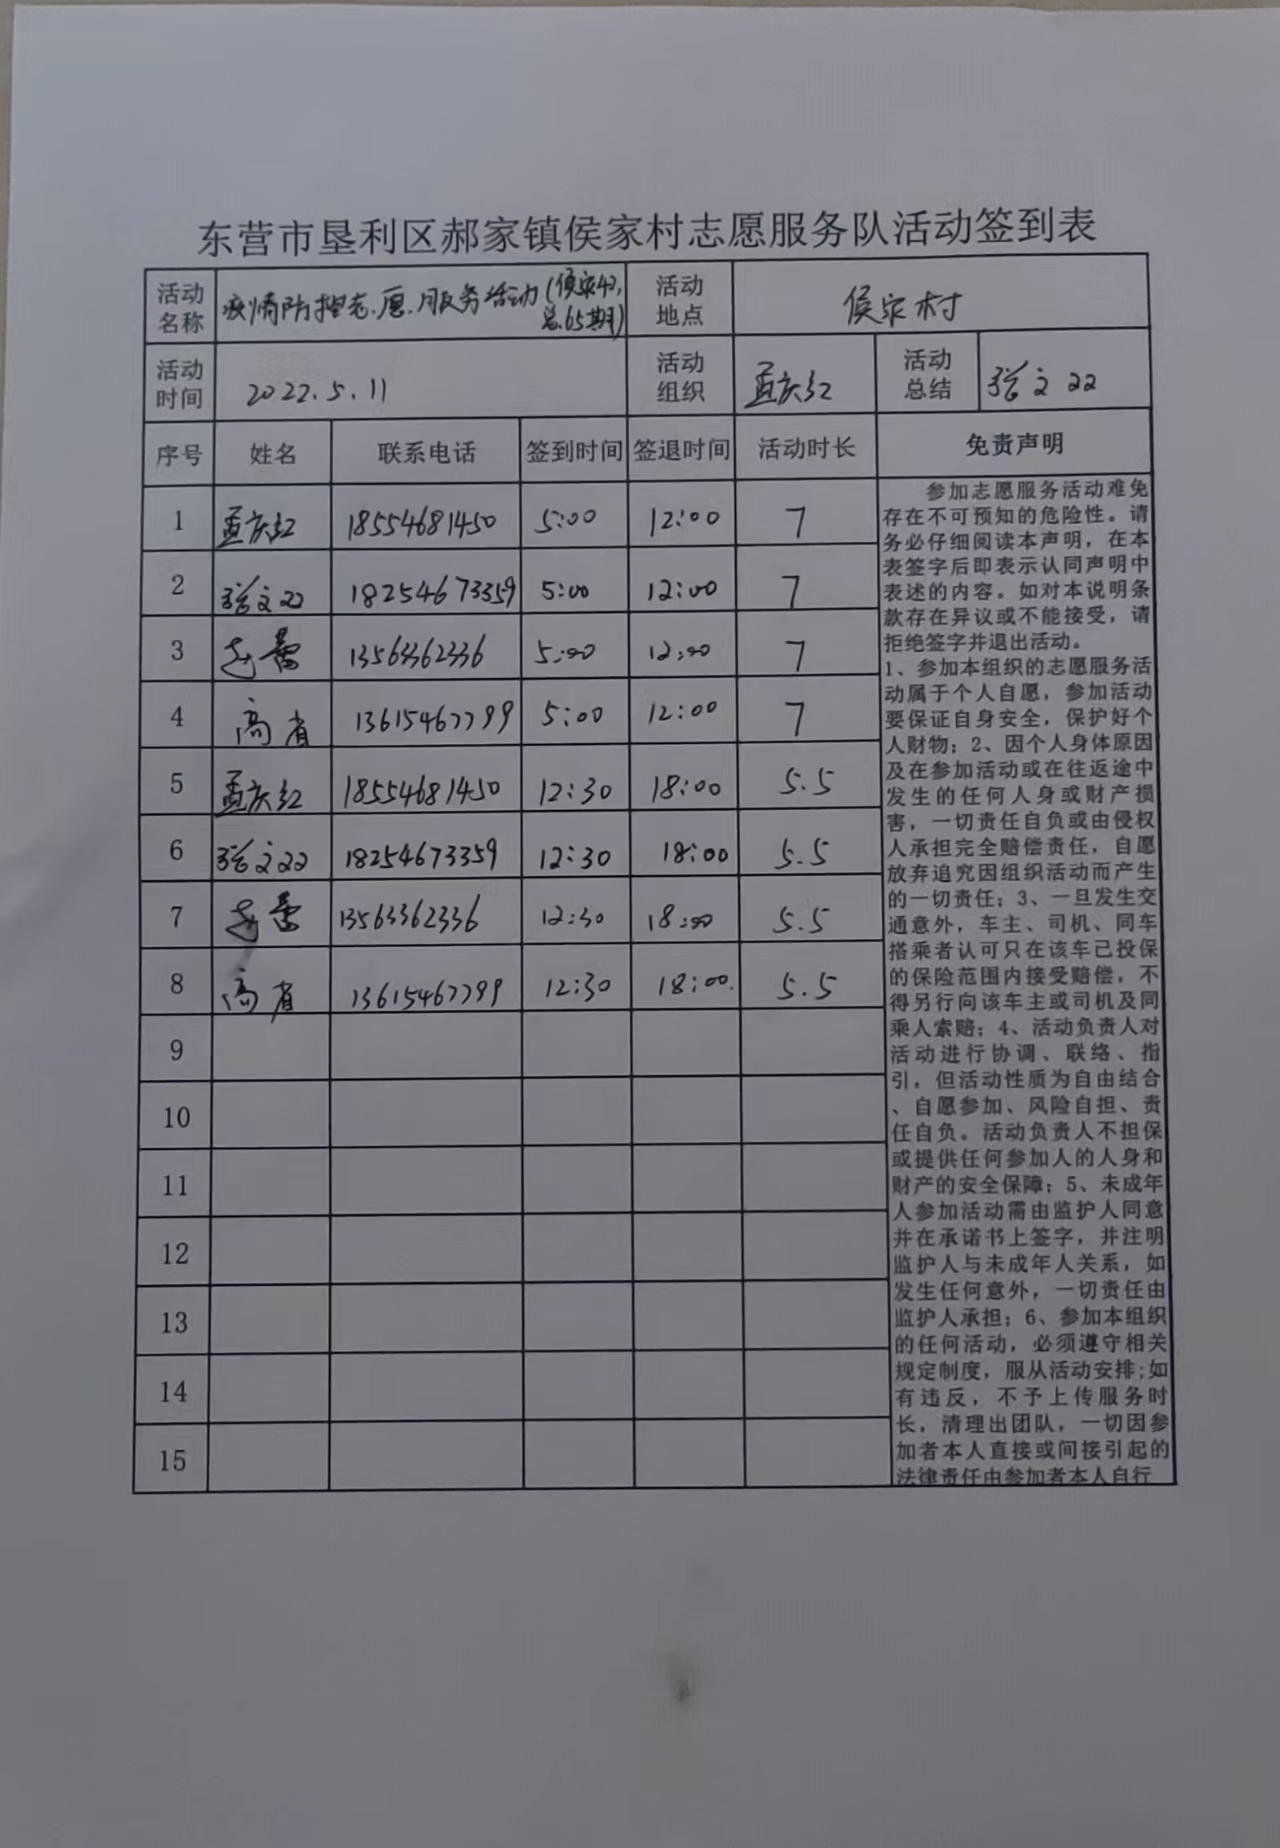 东营市垦利区郝家镇侯家村志愿服务队活动签到表
活动名称 疫情防控志愿服务活动(侯家42,总65期) 活动地点 侯家村
活动时间 2022.5.11 活动组织 孟庆红 活动总结 张文
序号 姓名 联系电话 签到时间 签退时间 活动时长 免责声明
1 孟庆红 18554681450 5:00 12:00 7
2 张文 18254673359 5:00 12:00 7
3 13563362336 5:00 12:00 7
4 高省 13615467799 5:00 12:00 7
5 孟庆红 18554681450 12:30 18:00 5.5
6 张文 18254673359 12:30 18:00 5.5
7 13563362336 12:30 18:00 5.5
8 高省 13615467799 12:30 18:00. 5.5
9
10
11
12
13
14
15
参加志愿服务活动难免
存在不可预知的危险性。请
务必仔细阅读本声明，在本
表签字后即表示认同声明中
表述的内容。如对本说明条
款存在异议或不能接受，请
拒绝签字并退出活动。
1、参加本组织的志愿服务活
动属于个人自愿，参加活动
要保证自身安全，保护好个
人财物；2、因个人身体原因
及在参加活动或在往返途中
发生的任何人身或财产损
害，一切责任自负或由侵权
人承担完全赔偿责任，自愿
放弃追究因组织活动而产生
的一切责任；3、一旦发生交
通意外，车主、司机、同车
搭乘者认可只在该车已投保
的保险范围内接受赔偿，不
得另行向该车主或司机及同
乘人索赔；4、活动负责人对
活动进行协调、联络、指
引，但活动性质为自由结合
、自愿参加、风险自担、责
任自负。活动负责人不担保
或提供任何参加人的人身和
财产的安全保障；5、未成年
人参加活动需由监护人同意
并在承诺书上签字，并注明
监护人与未成年人关系，如
发生任何意外，一切责任由
监护人承担；6、参加本组织
的任何活动，必须遵守相关
规定制度，服从活动安排;如
有违反，不予上传服务时
长，清理出团队，一切因参
加者本人直接或间接引起的
法律责任由参加者本人自行